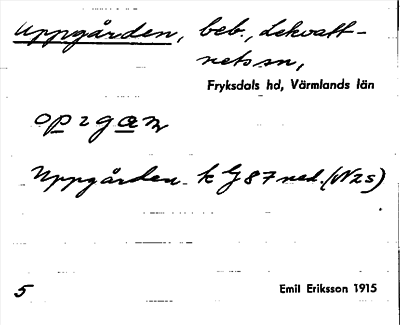 Uppgården, beb., Lekvatt-
nets sn,
Fryksdals hd, Värmlands län
Uppgården k G 87 ned. (N2S)
5
Emil Eriksson 1915